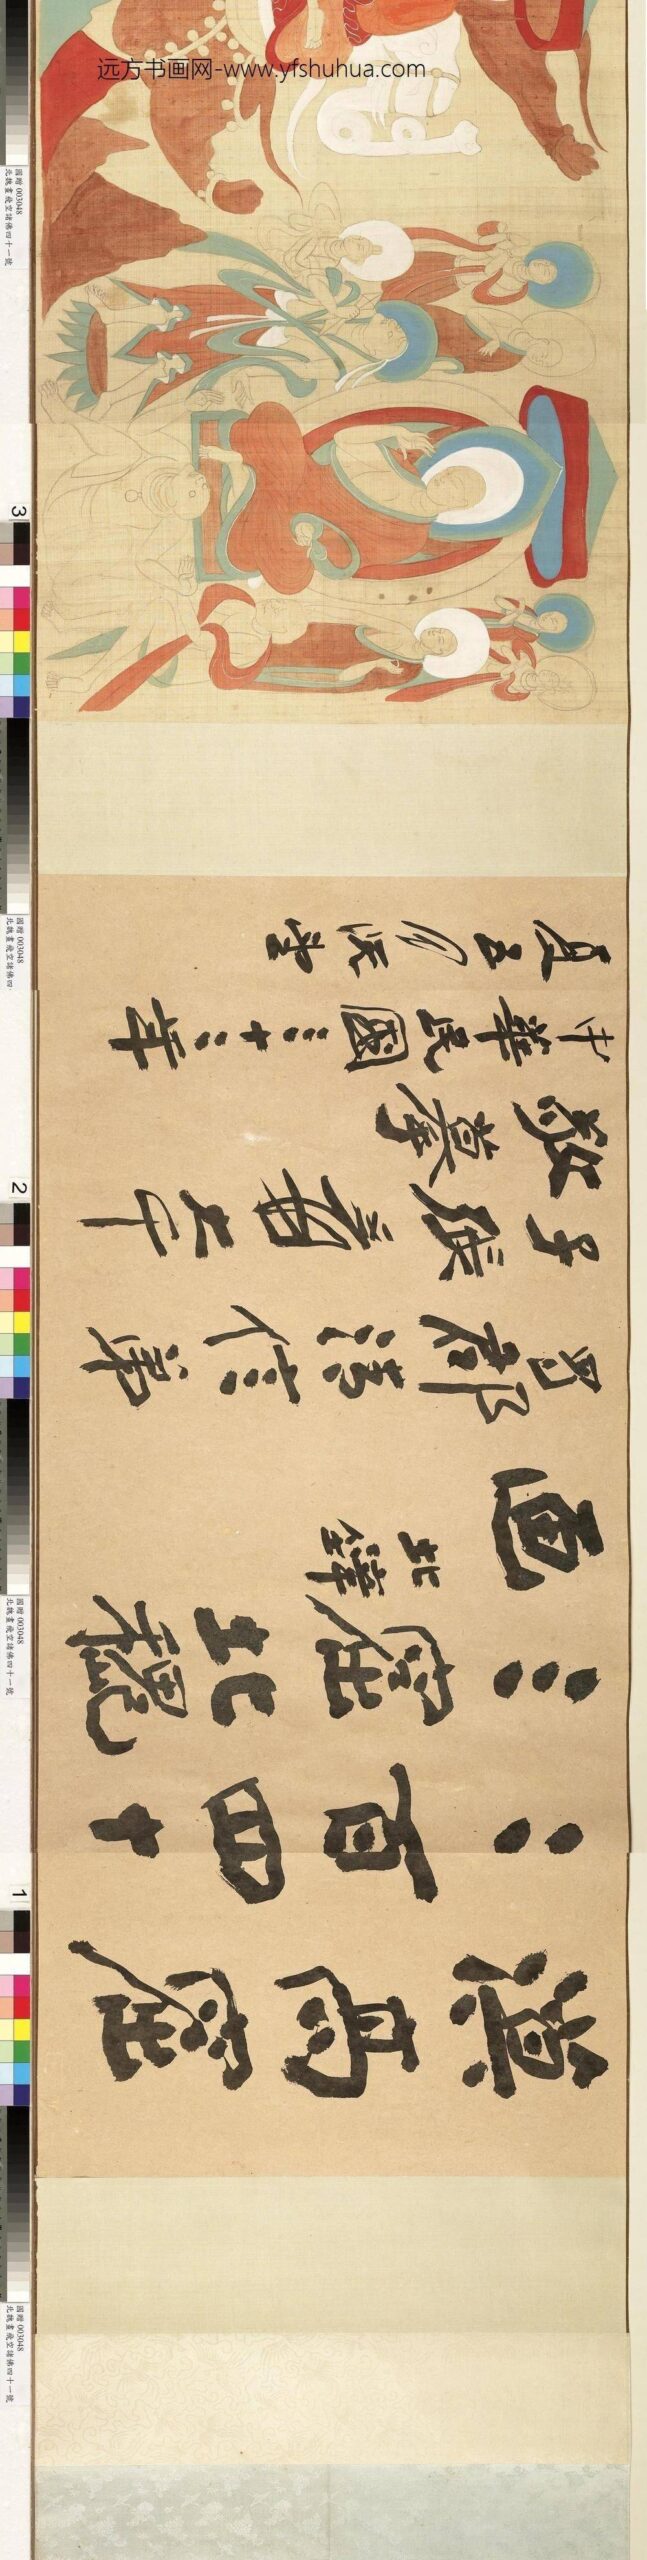 漠高窟
二百四十
三窟北魏
畫
蜀郡清信弟
子張爰大千
敬摹
中華民國三十二年
夏五月
远方书画网-www.yfshuhua.com
國贈 003048
北魏畫飛空諸佛四十一號
3
國贈 003048
北魏畫飛空諸佛四
2
國贈 003048
北魏畫飛空諸佛四十一號
1
國贈 003048
北魏畫飛空諸佛四十一號